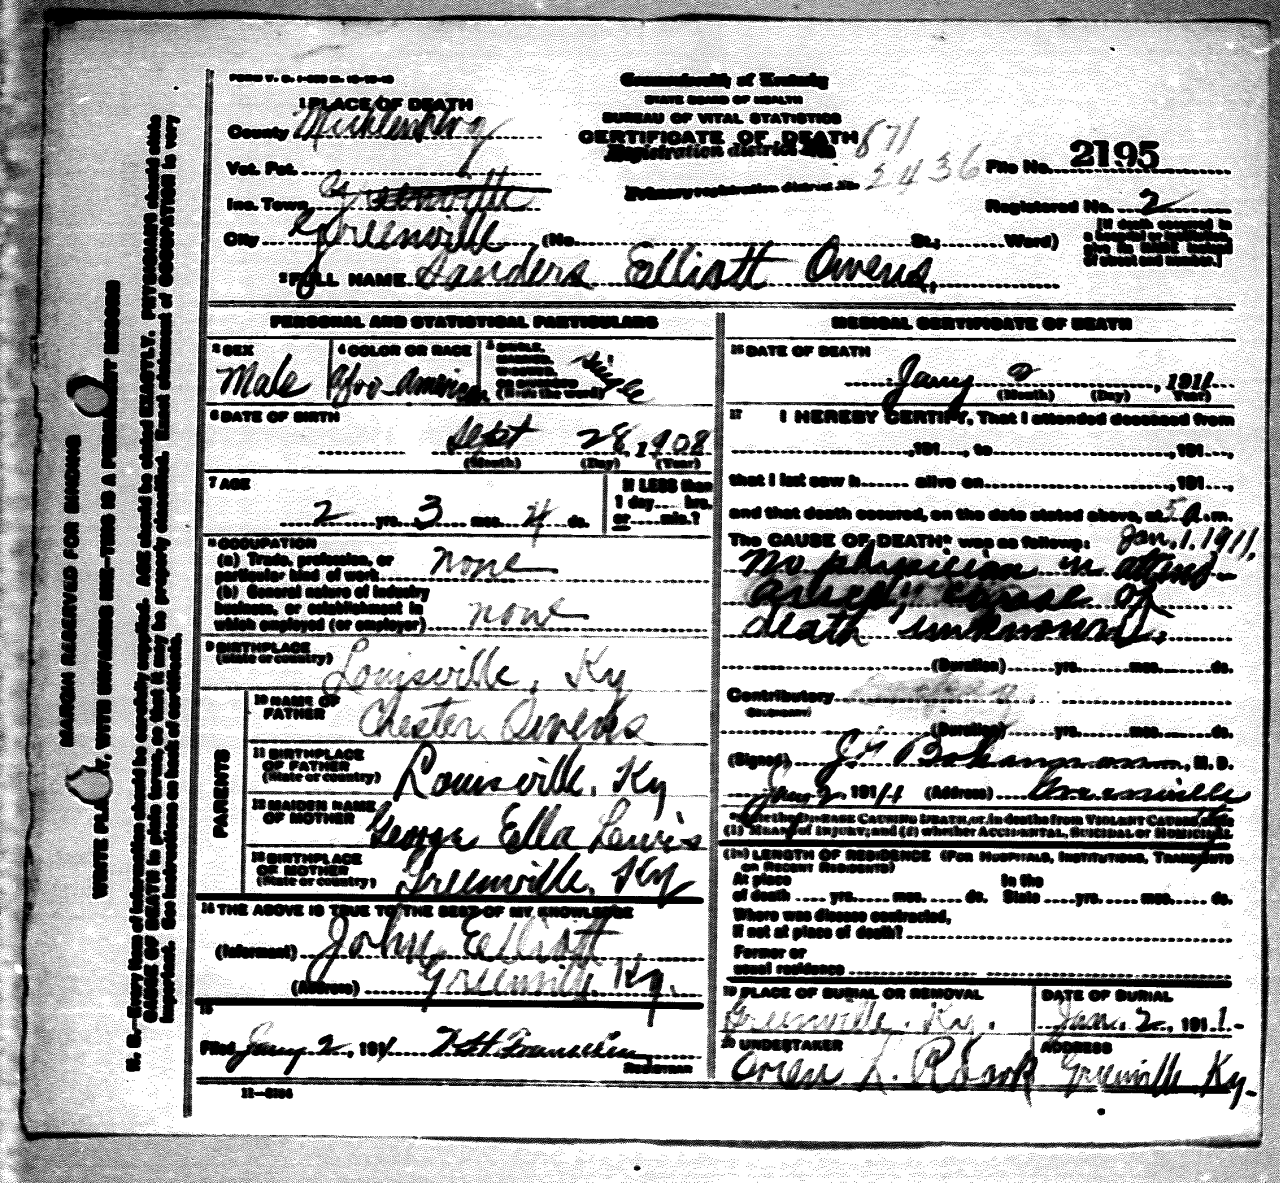 FORM V. S.
Commonwealth of Kentucky
STATE BOARD OF HEALTH
BUREAU OF VITAL STATISTICS
CERTIFICATE OF DEATH
1 PLACE OF DEATH
County
Vot. Pct.
Inc. Town Greenville
City Greenville (No. St.; Ward)
Registration district No. 871
Primary registration district No. 2436
File No. 2195
Registered No. 2
[If death occured in
a hospital or institution,
give its NAME instead
of street and number.]
2 FULL NAME Sanders Elliott Owens,
MARGIN RESERVED FOR BINDING
WRITE PLAINLY, WITH UNFADING INK—THIS IS A PERMANENT RECORD
N. B.—Every item of information should be carefully supplied. AGE should be stated EXACTLY. PHYSICIANS should state
CAUSE OF DEATH in plain terms, so that it may be properly classified. Exact statement of OCCUPATION is very
important. See instructions on back of certificate.
PERSONAL AND STATISTICAL PARTICULARS
3 SEX
Male
4 COLOR OR RACE
Afro-American
5 SINGLE,
MARRIED,
WIDOWED,
OR DIVORCED
(Write the word)
Single
6 DATE OF BIRTH
Sept 28, 1908
(Month) (Day) (Year)
7 AGE
2 yrs. 3 mos. 4 ds.
If LESS than
1 day hrs.
or min.?
8 OCCUPATION
(a) Trade, profession, or
particular kind of work none
(b) General nature of industry
business, or establishment in
which employed (or employer) none
9 BIRTHPLACE
(State or country) Louisville, Ky
PARENTS
10 NAME OF
FATHER Chester Owens
11 BIRTHPLACE
OF FATHER
(State or country) Louisville, Ky
12 MAIDEN NAME
OF MOTHER George Ella Lewis
13 BIRTHPLACE
OF MOTHER
(State or country) Greenville, Ky
14 THE ABOVE IS TRUE TO THE BEST OF MY KNOWLEDGE
(Informant) John Elliott
(Address) Greenville Ky.
15
Filed Jany 2, 191
REGISTRAR
11—5184
MEDICAL CERTIFICATE OF DEATH
16 DATE OF DEATH
Jany , 1911
(Month) (Day) (Year)
17 I HEREBY CERTIFY, That I attended deceased from
,191 , to ,191 ,
that I last saw h alive on ,191 ,
and that death occured, on the date stated above, at 5 a. m.
The CAUSE OF DEATH* was as follows: Jan. 1, 1911,
No physician in attend-
cause of
death unknown.
(Duration) yrs. mos. ds.
Contributory
(Duration) yrs. mos. ds.
(Signed) , M. D.
Jany 2 191 (Address) Greenville
*State the DISEASE CAUSING DEATH, or, in deaths from VIOLENT CAUSES, state
(1) MEANS OF INJURY; and (2) whether ACCIDENTAL, SUICIDAL or HOMICIDAL.
(18) LENGTH OF RESIDENCE (FOR HOSPITALS, INSTITUTIONS, TRANSIENTS
OR RECENT RESIDENTS)
At place
of death yrs. mos. ds.
In the
State yrs. mos. ds.
Where was disease contracted,
if not at place of death?
Former or
usual residence
19 PLACE OF BURIAL OR REMOVAL
Greenville, Ky.
DATE OF BURIAL
Jan. 2, 1911.
20 UNDERTAKER
Oren L. Roark
ADDRESS
Greenville Ky.